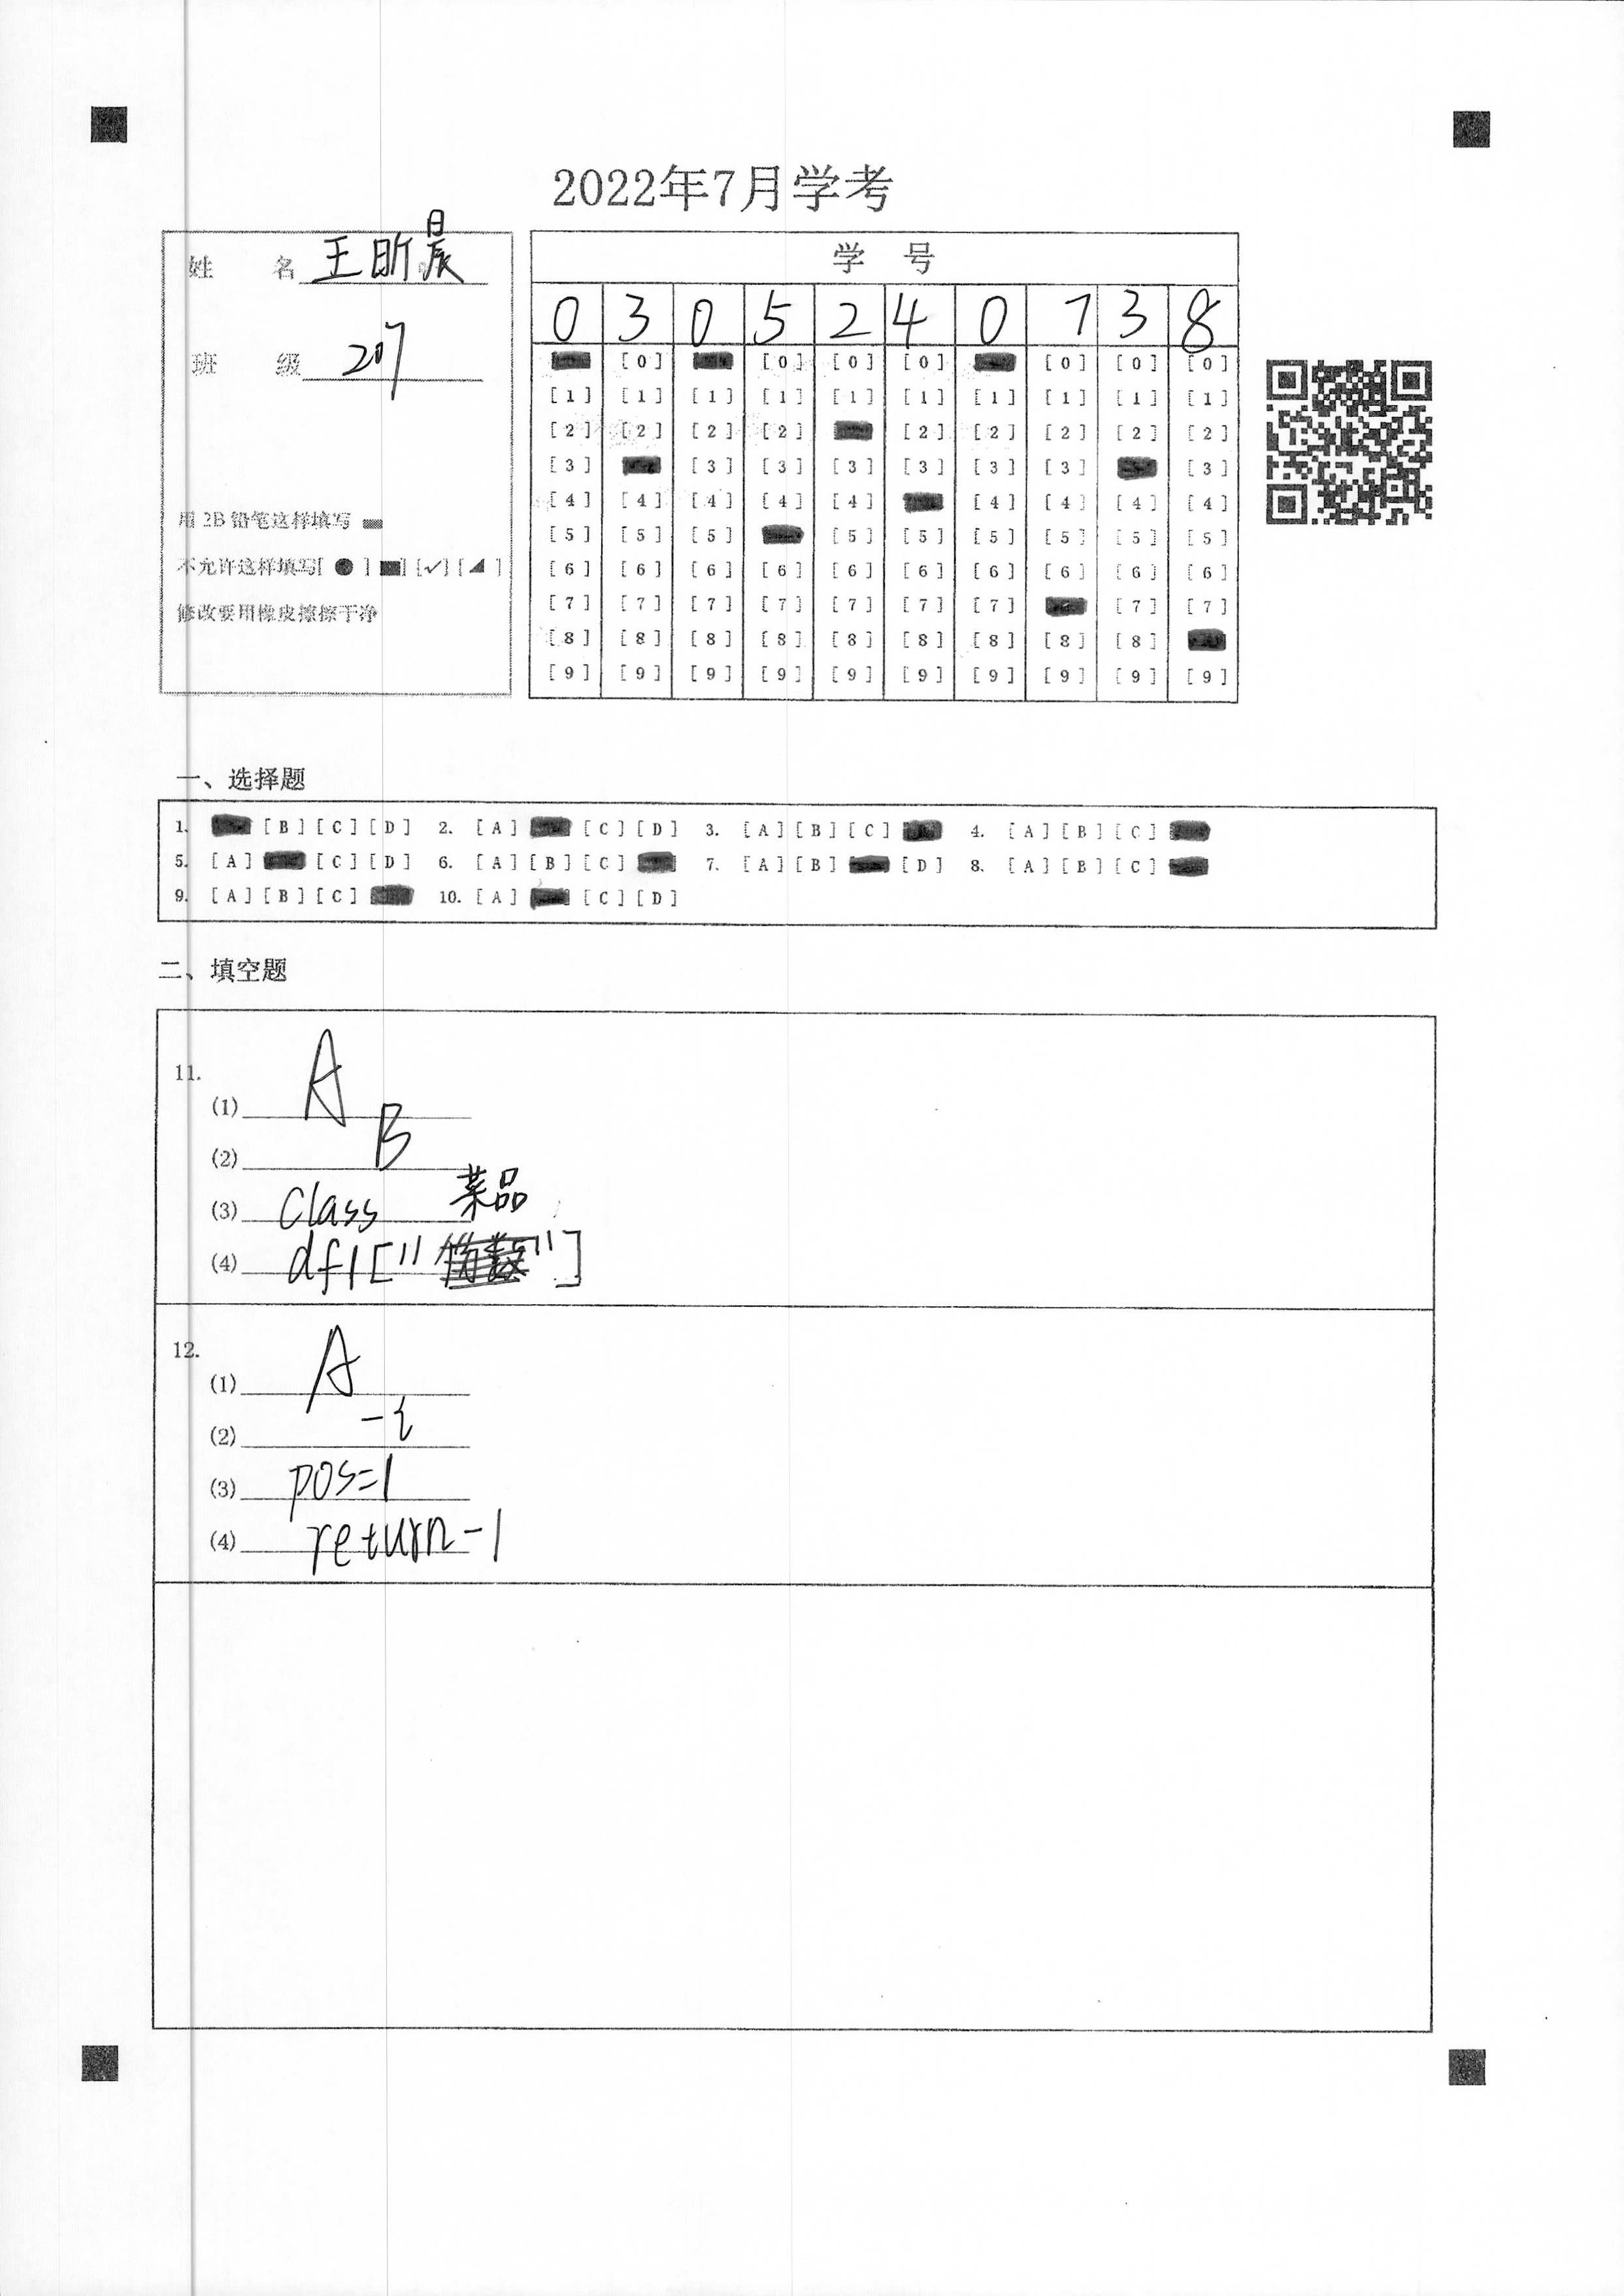 2022年7月学考
姓 名 王昕晨
班 级 207
用 2B 铅笔这样填写
不允许这样填写[ ● ] [■] [✓] [◢ ]
修改要用橡皮擦擦干净
学 号
0 3 0 5 2 4 0 7 3 8
[0] [0] [0] [0] [0] [0] [0]
[1] [1] [1] [1] [1] [1] [1] [1] [1] [1]
[2] [2] [2] [2] [2] [2] [2] [2] [2]
[3] [3] [3] [3] [3] [3] [3] [3]
[4] [4] [4] [4] [4] [4] [4] [4] [4]
[5] [5] [5] [5] [5] [5] [5] [5] [5]
[6] [6] [6] [6] [6] [6] [6] [6] [6] [6]
[7] [7] [7] [7] [7] [7] [7] [7] [7]
[8] [8] [8] [8] [8] [8] [8] [8] [8]
[9] [9] [9] [9] [9] [9] [9] [9] [9] [9]
一、选择题
1. [B] [C] [D] 2. [A] [C] [D] 3. [A] [B] [C] 4. [A] [B] [C]
5. [A] [C] [D] 6. [A] [B] [C] 7. [A] [B] [D] 8. [A] [B] [C]
9. [A] [B] [C] 10. [A] [C] [D]
二、填空题
11.
(1) A
(2) B
(3) class
菜品
(4) df1["份数"]
12.
(1) A
(2) -i
(3) pos=1
(4) return-1